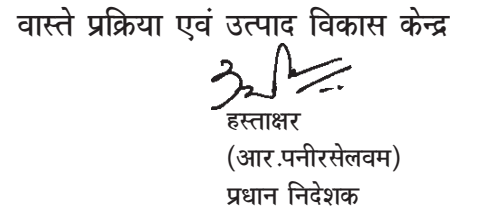 वास्ते प्रक्रिया एवं उत्पाद विकास केन्द्र
हस्ताक्षर
(आर.पनीरसेलवम)
प्रधान निदेशक